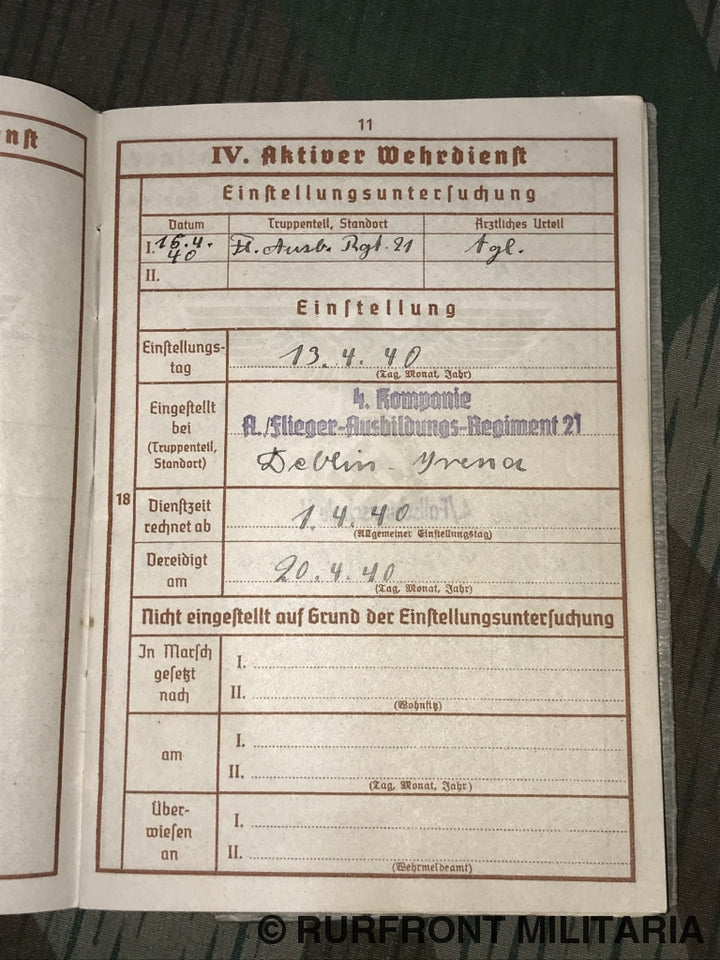 nst
11
IV. Aktiver Wehrdienst
Einstellungsuntersuchung
Datum Truppenteil, Standort Ärztliches Urteil
I. 16.4.40 Fl. Ausb. Rgt. 21 tgl.
II.
Einstellung
Einstellungstag 13.4.40
(Tag, Monat, Jahr)
Eingestellt bei (Truppenteil, Standort)
4. Kompanie
A./Flieger-Ausbildungs-Regiment 21
Deblin-Irena
18
Dienstzeit rechnet ab 1.4.40
(Allgemeiner Einstellungstag)
Vereidigt am 20.4.40
(Tag, Monat, Jahr)
Nicht eingestellt auf Grund der Einstellungsuntersuchung
In Marsch gesetzt nach
I.
II.
(Wohnsitz)
am
I.
II.
(Tag, Monat, Jahr)
Überwiesen an
I.
II.
(Wehrmeldeamt)
© RURFRONT MILITARIA